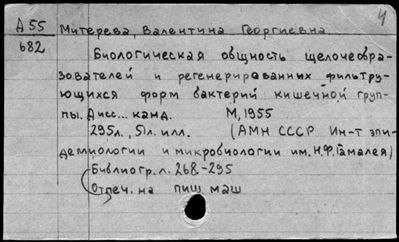 4
А55 Митерева, Валентина Георгиевна
682
Биологическая общность щелочеобра-
зователей и регенерированных фильтру-
ющихся форм бактерий кишечной груп-
пы. Дисс... канд. М, 1955
295л., 51л. илл. (АМН СССР Ин-т эпи-
демиологии и микробиологии им. Н.Ф. Гамалея)
Библиогр. л. 268-295
Отпеч. на пиш маш